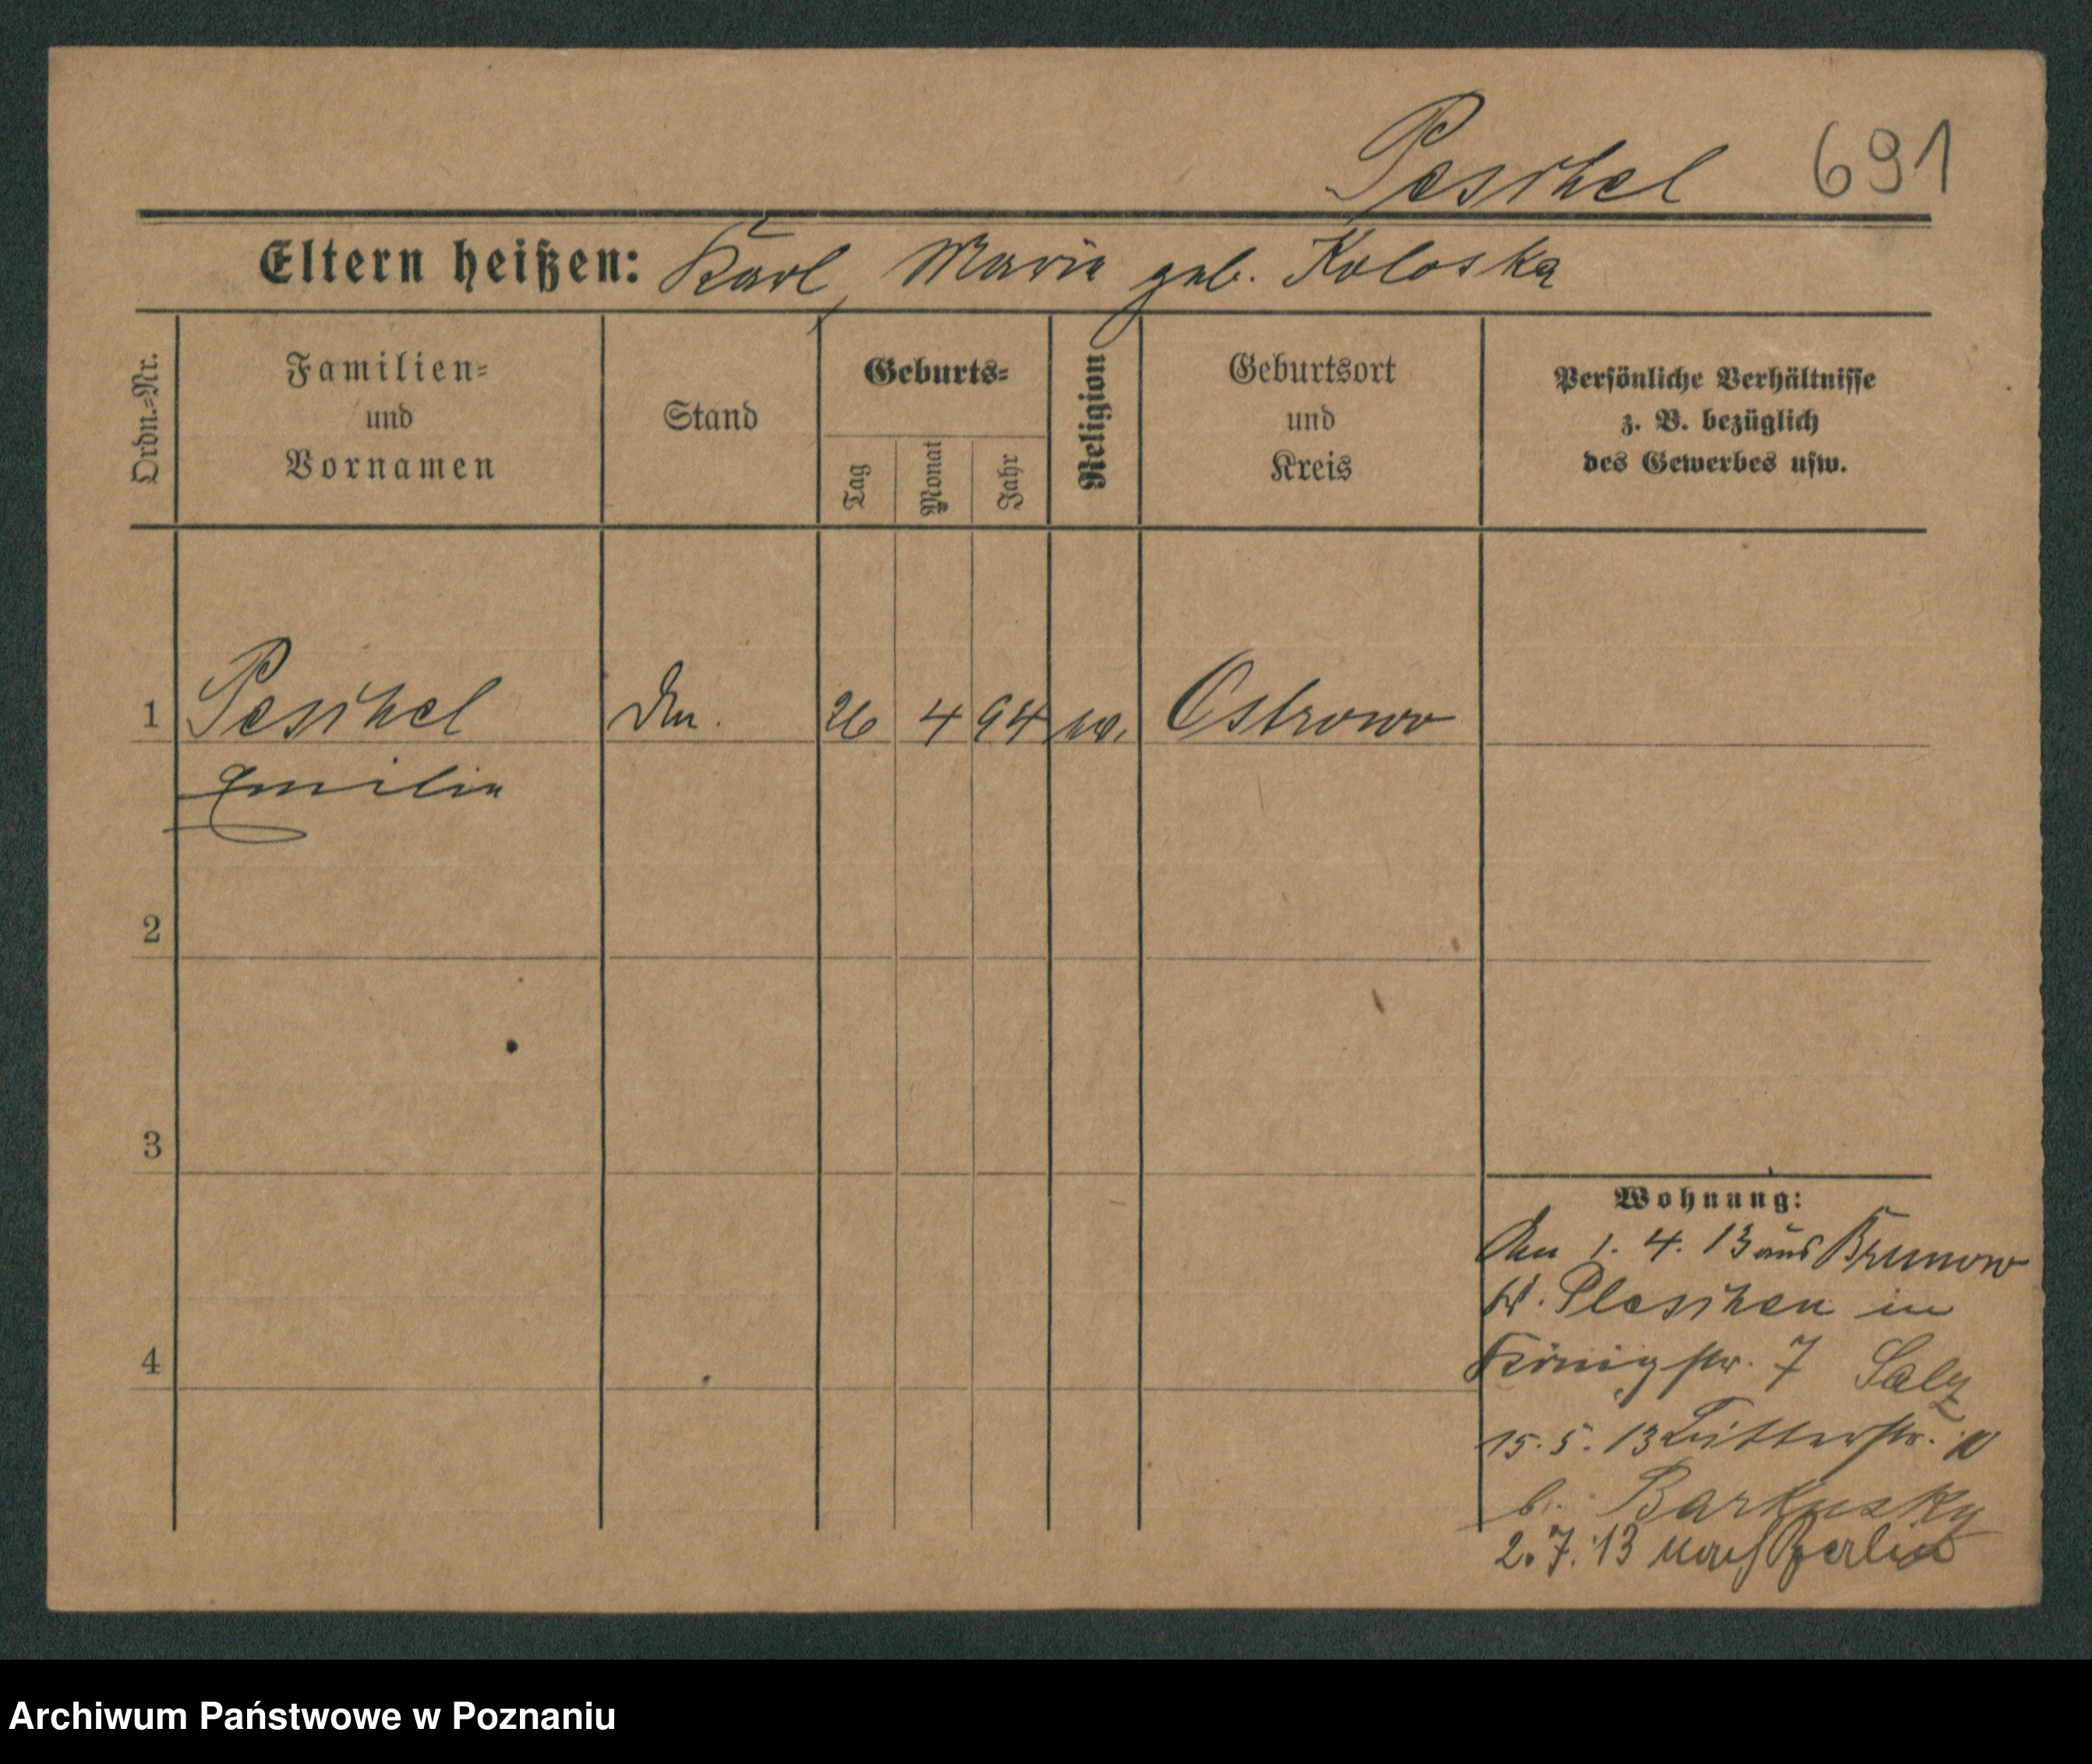 Peschel 691
Eltern heißen: Karl, Maria geb. Koloska
Ordn.=Nr.
Familien=
und
Vornamen
Stand
Geburts=
Tag
Monat
Jahr
Religion
Geburtsort
und
Kreis
Persönliche Verhältnisse
z. B. bezüglich
des Gewerbes usw.
1 Peschel 26 4 94 Ostrowo
Emilie
2
3
4
Wohnung:
1. 4. 13 aus Brunow
Kr. Pleschen in
Königstr. 7
15. 5. 13 Ritterstr.
b.
2. 7. 13 nach Berlin
Archiwum Państwowe w Poznaniu